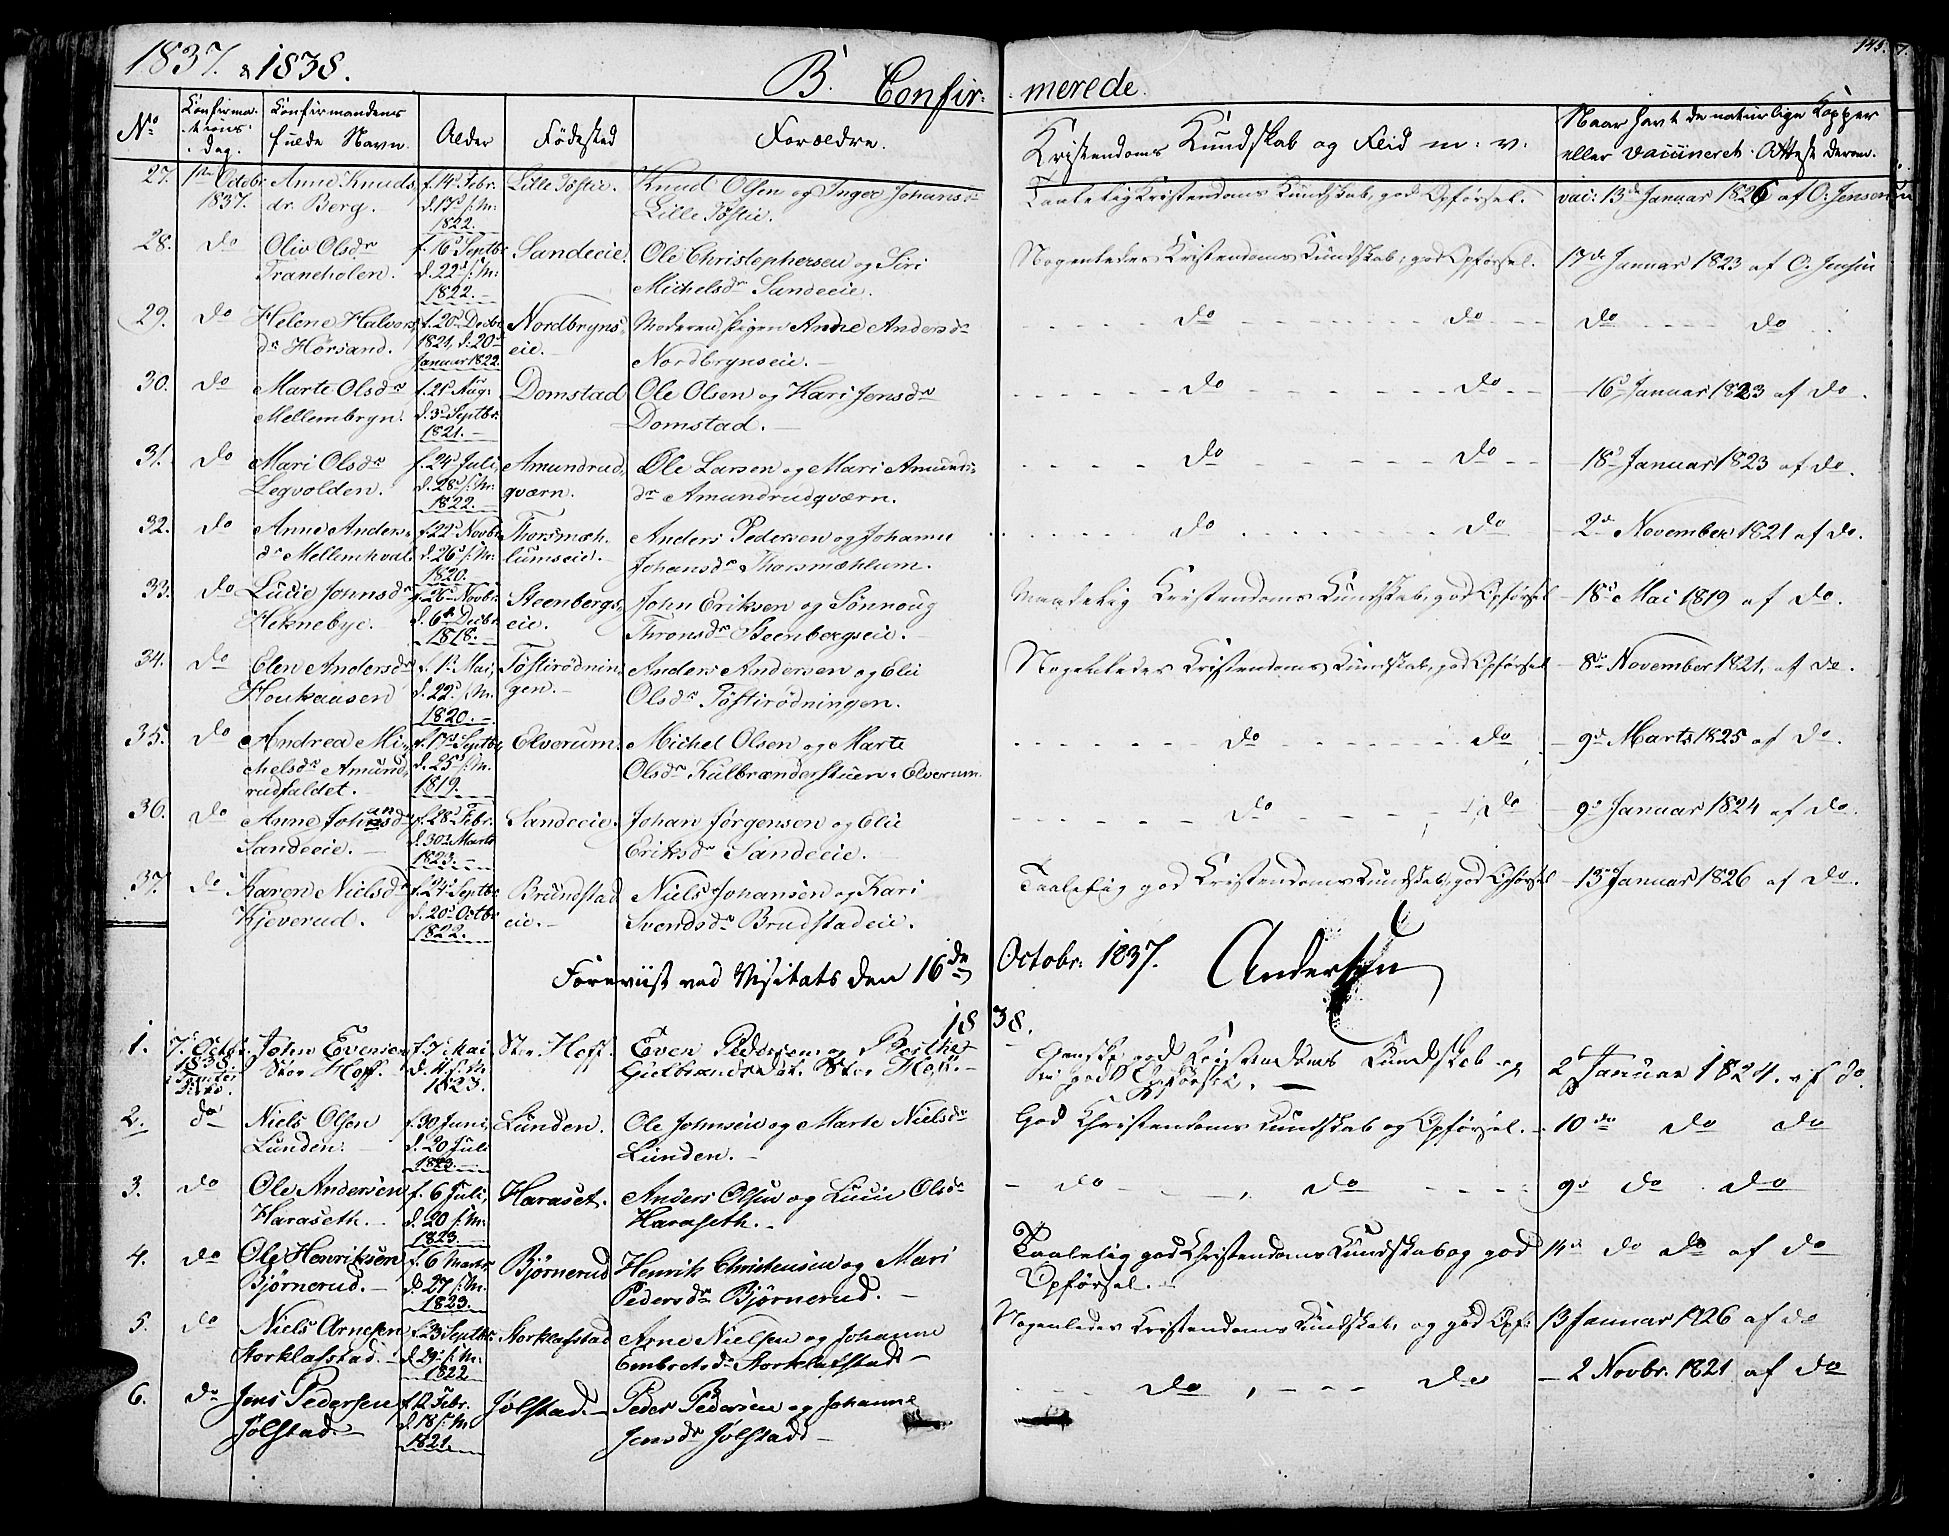 1837. & 1838.
B. Confir-merede.
145.
No
Confirma-tions-dag.
Confirmandens fulde Navn.
Alder
Fødested
Forældre.
Kristendoms Kundskab og Flid m: v:
Naar havt de naturlige Kopper eller vaccineret. Attest derom.
27. 1ste Octobr 1837. Anne Knudsdr. Berg. f. 14d Febr. d. 17d s: M. 1822. Lille Tøstie. Knud Olsen og Inger Johansdr Lille Tøstie. Taalelig Kristendoms Kundskab, god Opførsel. vac: 13de Januar 1826 af O: Jensen
28. do Oliv Olsdr Traneholen. f. 16d Septbr d. 22d s: M. 1822. Sandeeie. Ole Christophersen og Siri Michelsdr Sandeeie. Nogenledes Kristendoms Kundskab, god Opførsel. 17de Januar 1823 af O. Jensen
29. do Helene Halvorsdr Hørsand. f. 20d Decbr 1821, d. 20d Januar 1822. Nordbrynseie. Moderen, Pigen Anne Andersdr Nordbrynseie. do do do do
30. do Marte Olsdr Mellembryn. f. 21d Aug. d. 3d Septbr. 1821. Domstad Ole Olsen og Kari Jensdr Domstad. do do 16d Januar 1823 af do.
31. do Mari Olsdr Legvolden. f. 24d Juli, d. 28d s: M. 1822. Amundrudqværn. Ole Larsen og Mari Amundsdr Amundrudqværn. do do 18d Januar 1823 af do.
32. do Anne Andersdr Mellemhval f. 22d Novbr d. 26d s: M. 1820. Thorsmæhlumseie. Anders Pedersen og Johanne Johansdr Thorsmæhlum. do do 2de November 1821 af do.
33. do Lucie Johnsdr Heknebye. f. 26d Novbr. d. 6d Decbr. 1818. Steenbergseie. John Eriksen og Sønnoug Thronsdr Steenbergseie. Maadelig Kristendoms Kundskab, god Opførsel 18d Mai 1819 af do.
34. do Elen Andersdr Houkaasen f. 1d Mai, d. 22d s: M. 1820. Tøstirødningen. Anders Andersen og Eli Olsdr Tøstirødningen. Nogenledes Kristendoms Kundskab, god Opførsel 8de November 1821, af do.
35. do Andrea Michelsdr Amundrudfaldet. f. 17d Septbr d. 25d s: M. 1819. Elverum. Michel Olsen og Marte Olsdr Kulbrænderstuen i Elverum. do do 9d Marts 1825 af do.
36. do Anne Johansdr Sandeeie. f. 28d Febr. d. 30d Marts 1823. Sandeeie. Johan Jørgensen og Eli Eriksdr Sandeeie. do do 9d Januar 1824 af do.
37. do Karen Nielsdr Kjeverud. f. 24d Septbr d. 20d Octbr 1822. Brundstadeie. Niels Johansen og Kari Svendsdr Brudstadeie. Taalelig god Kristendoms Kundskab, god Opførsel 13d Januar 1826 af do.
Foreviist ved Visitats den 16de Octobr: 1837. Andersen
1838.
1. 7. Octbr. 1838. John Evensen Stor Hoff. f. 7 Mai 1823. Stor Hoff. Even Pedersen og Berthe Gulbrandsdtr. Stor Hoff. Ganske god Kristendoms Kundskab og god Opførsel. 2d Januar 1824. af do
2. do Niels Olsen Lunden. f. 30 Juni, d. 20 Juli 1823. Lunden. Ole Johnsen og Marte Nielsdr Lunden. God Christendoms Kundskab og Opførsel. 10de do do
3. do Ole Andersen Haraseth. f. 6 Juli, d. 20 s: M. 1823. Haraset. Anders Olsen og Lucie Olsdr Haraseth. do do 9d do do
4. do Ole Henriksen Bjørnerud. f. 6 Marts d. 27 s: M. 1823. Bjørnerud Henrik Christensen og Mari Pedersdr Bjørnerud. Taalelig god Christendoms Kundskab og god Opførsel. 14d do do af do
5. do Niels Arnesen Storklafstad. f. 23 Septbr. d. 29d s: M. 1822 Storklafstad Arne Nielsen og Johanne Embretsdr Storklafstad Nogenledes Kristendoms Kundskab, og god Opf: 13 Januar 1826 af do
6. do Jens Pedersen Jølstad. f. 12 Febr. d. 18 s: M 1821. Jølstad. Peder Pedersen og Johanne Jensdr Jølstad do do 2 Novbr. 1821 af do